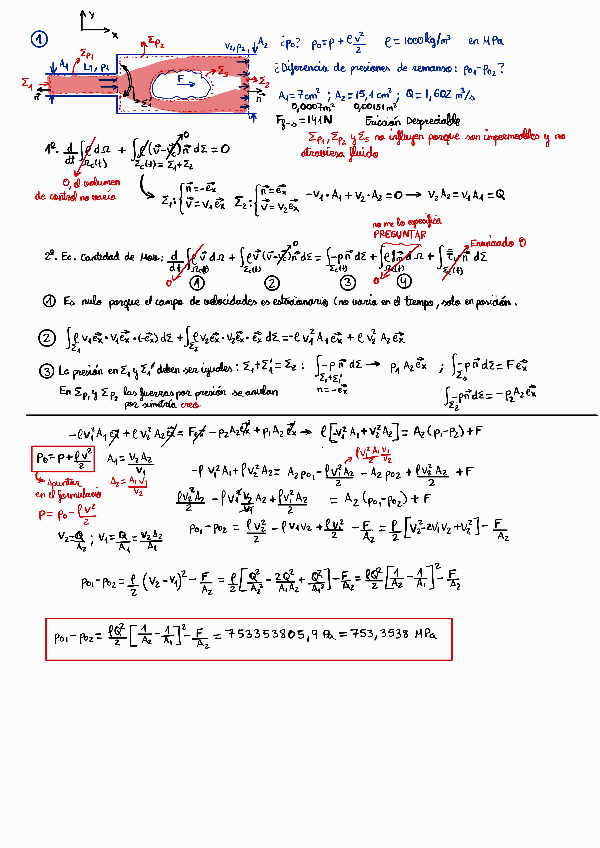 ① ¿p₀? p₀=p+ρv²/2 ρ=1000kg/m³ en MPa
¿Diferencia de presiones de remanso: p₀₁-p₀₂?
A₁=7cm² ; A₂=15,1cm² ; Q=1,602 m³/s
0,0007m² 0,00151m²
F = 141N Fricción Despreciable
Σp₁, Σp₂ y Σs no influyen porque son impermeables y no
atraviesa fluido
y
x
A₁ Σp₁ L₁, p₁ Σp₂ v₂, p₂ A₂
Σ₁ n Σ₁' F Σs Σ₂ n
1º. d/dt ∫Ωc(t) ρ dΩ + ∫Σc(t)=Σ₁+Σ₂ ρ(v-vc)n dΣ = 0
0, el volumen
de control no varía
Σ₁: { n=-ex v=v₁ex Σ₂: { n=ex v=v₂ex -v₁·A₁+v₂·A₂=0 → v₂A₂=v₁A₁=Q
no me lo especifica
PREGUNTAR
Enunciado 0
2º. Ec. Cantidad de Mov.: d/dt ∫Ωc(t) ρv dΩ + ∫Σc(t) ρv(v-vc)n dΣ = ∫Σc(t) -pn dΣ + ∫Ωc(t) ρfm dΩ + ∫Σc(t) τ n dΣ
0 ① ② ③ 0 ④
① Es nulo porque el campo de velocidades es estacionario (no varía en el tiempo, solo en posición.
② ∫Σ₁ ρv₁ex·v₁ex·(-ex)dΣ + ∫Σ₂ ρv₂ex·v₂ex·ex dΣ = -ρv₁²A₁ex + ρv₂²A₂ex
③ La presión en Σ₁ y Σ₁' deben ser iguales: Σ₁+Σ₁'=Σ₂ : ∫Σ₁+Σ₁' -pn dΣ → p₁A₂ex ; ∫Σs -pn dΣ = Fex
n=-ex
En Σp₁ y Σp₂ las fuerzas por presión se anulan
por simetría creo
∫Σ₂ -pn dΣ = -p₂A₂ex
-ρv₁²A₁ex + ρv₂²A₂ex = Fex - p₂A₂ex + p₁A₂ex → ρ[-v₁²A₁+v₂²A₂] = A₂(p₁-p₂)+F
p₀=p+ρv²/2
Apuntar
en el formulario
p=p₀-ρv²/2
A₁=v₂A₂/v₁
A₂=A₁v₁/v₂
-ρv₁²A₁+ρv₂²A₂ = A₂p₀₁-ρv₁²A₂/2 - A₂p₀₂ + ρv₂²A₂/2 + F
ρv₂²A₂/2 - ρv₁²v₂/v₁ A₂ + ρv₁²A₂/2 = A₂(p₀₁-p₀₂)+F
v₂=Q/A₂ ; v₁=Q/A₁=v₂A₂/A₁
p₀₁-p₀₂ = ρv₂²/2 - ρv₁v₂ + ρv₁²/2 - F/A₂ = ρ/2[v₂²-2v₁v₂+v₁²] - F/A₂
p₀₁-p₀₂ = ρ/2(v₂-v₁)² - F/A₂ = ρ/2[Q²/A₂² - 2Q²/A₁A₂ + Q²/A₁²] - F/A₂ = ρQ²/2[1/A₂ - 1/A₁]² - F/A₂
p₀₁-p₀₂ = ρQ²/2[1/A₂ - 1/A₁]² - F/A₂ = 753353805,9 Pa = 753,3538 MPa